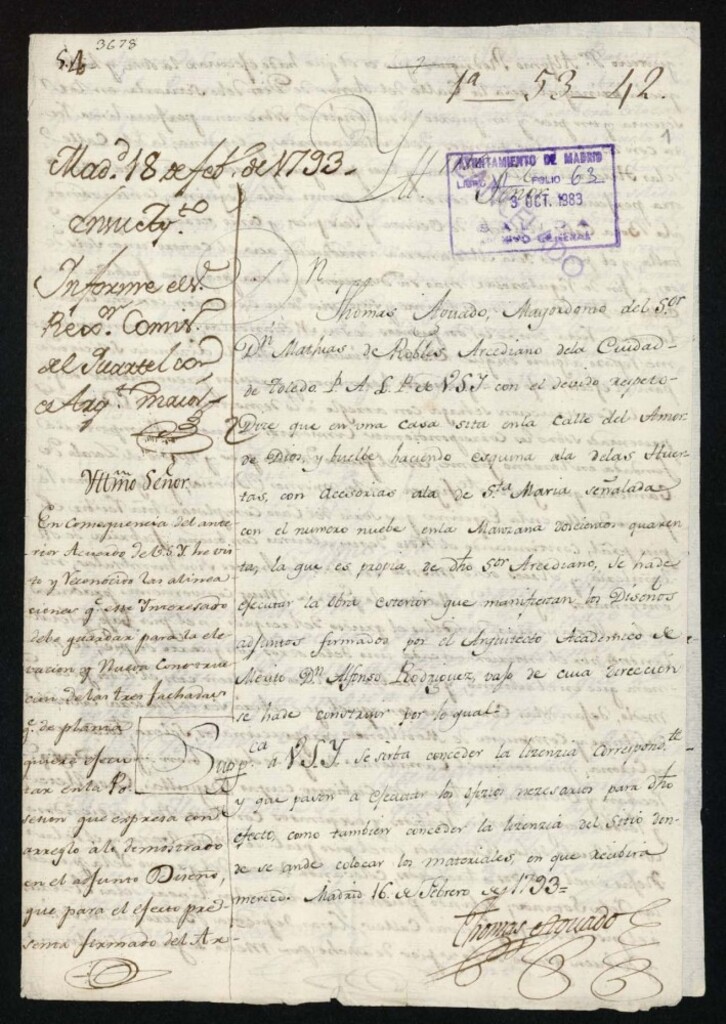 3678
1ª - 53 - 42.
1
Mad.d 18 de feb.o de 1793.
en su Ay.to
Informe el S.r
Rex.or Comis.o
del Quartel con
el Arq.to maior
Yllmo Señor.
En consequencia del ante
rior Acuerdo de V.S.Y. he vis
to y reconocido las alinea
ciones q.e este Interesado
debe guardar para la ele
vacion y Nueva Construc
cion de las tres fachadas
q.e de planta
quiere ejecu
tar en la Po
sesion que expresa con
arreglo a lo demostrado
en el adjunto Diseño,
que para el efecto pre
senta firmado del Ar-
Yll.mo Señor
AYUNTAMIENTO DE MADRID
LIBRO FOLIO 63
3 OCT. 1983
SALIDA
ARCHIVO GENERAL
D.n Thomas Aguado, Mayordomo del S.or
D.n Mathias de Robles, Arcediano de la Ciudad
de Toledo P. A. L. P. de V.S.Y. con el devido respeto
Dize que en una casa sita en la Calle del Amor
de Dios, y buelbe haciendo esquina a la de las Huer
tas, con accesorias a la de S.ta Maria señalada
con el numero nuebe en la Manzana doscientos quaren
ta, la que es propia de dho S.or Arcediano, se ha de
ejecutar la obra exterior que manifiestan los Diseños
adjuntos firmados por el Arquitecto Academico de
Merito D.n Alfonso Rodriguez, vajo de cuia direccion
se ha de construir por lo qual =
Supp.ca a V.S.Y. se sirba conceder la lizenzia correspond.te
y que pasen a ejecutar los oficios nezesarios para dho
efecto, como tambien conceder la lizenzia del Sitio don
de se ande colocar los materiales, en que recibira
merced. Madrid 16 de Febrero de 1793 =
Thomas Aguado